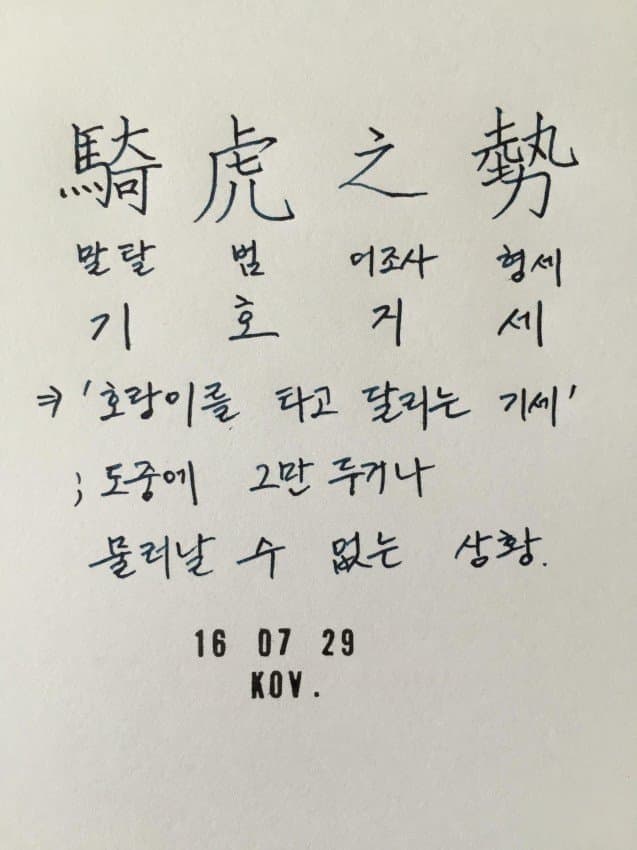 騎 虎 之 勢
말탈 범 어조사 형세
기 호 지 세
⇒ '호랑이를 타고 달리는 기세'
; 도중에 그만 두거나
물러날 수 없는 상황.
16 07 29
KOV.